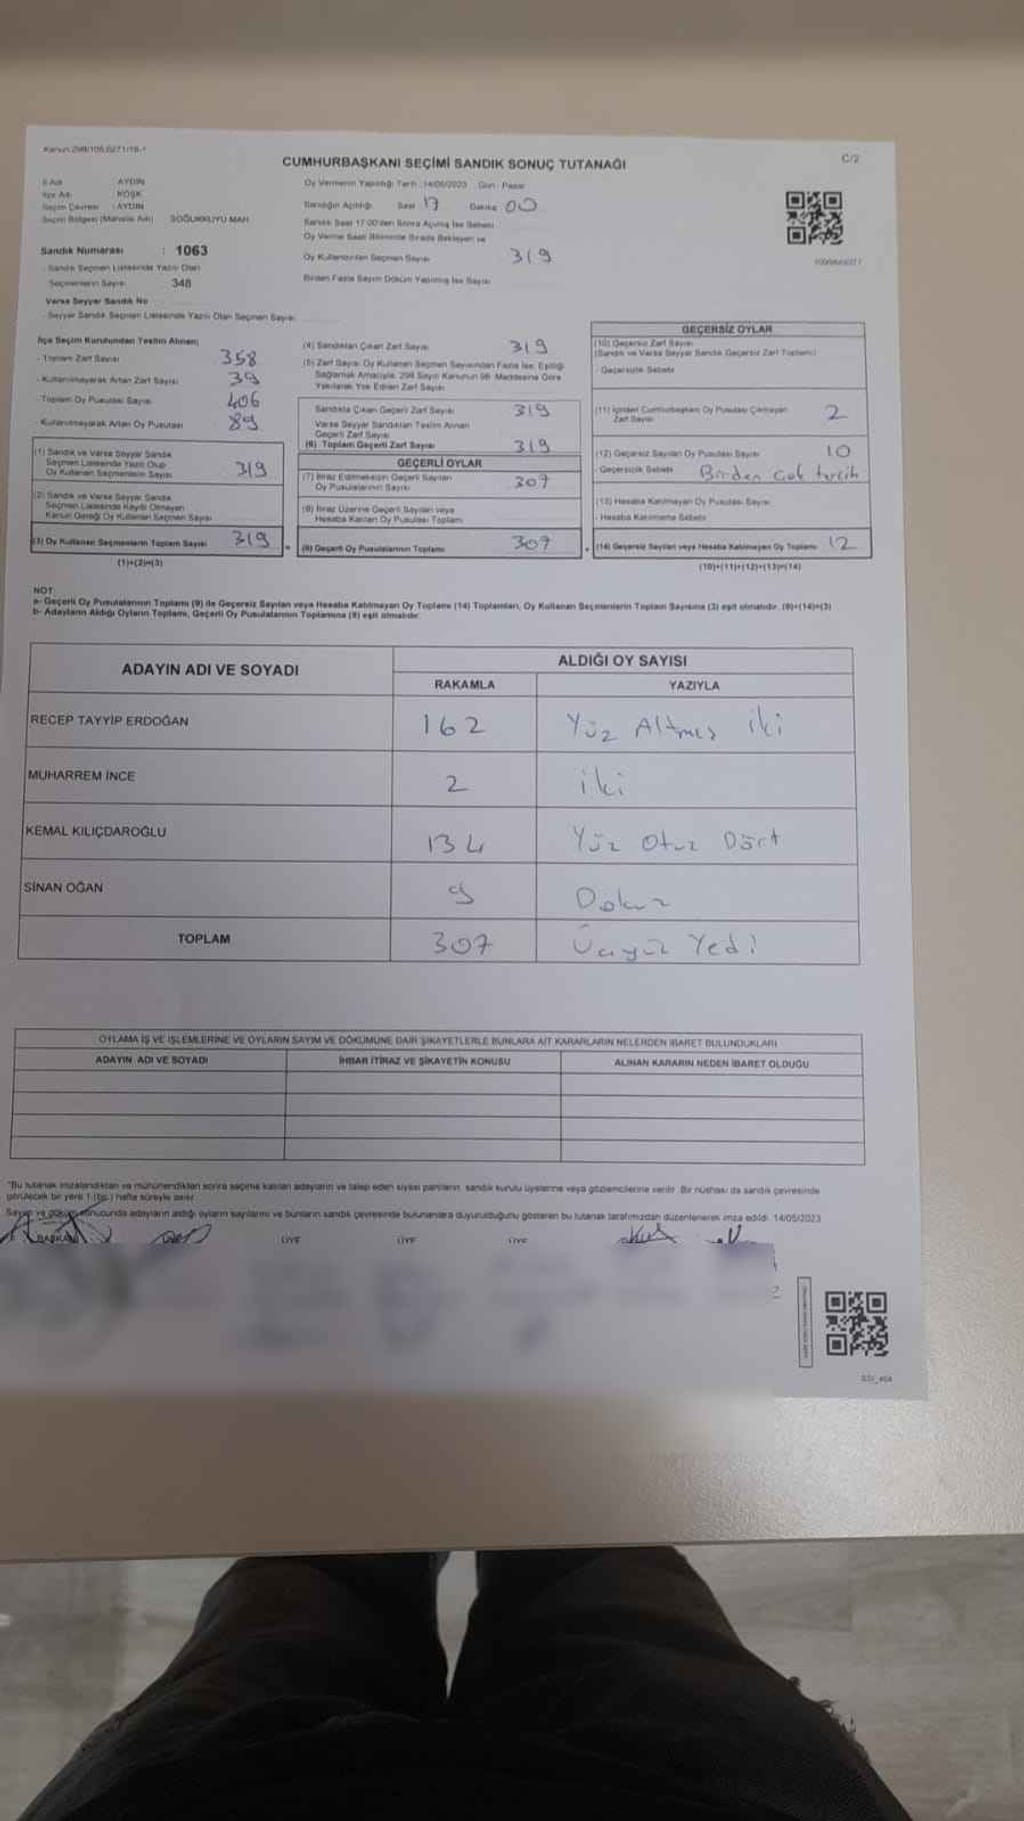 Kanun:298/105,6271/18-1
CUMHURBAŞKANI SEÇİMİ SANDIK SONUÇ TUTANAĞI
C/2
İl Adı : AYDIN
İlçe Adı : KÖŞK
Seçim Çevresi : AYDIN
Seçim Bölgesi (Mahalle Adı) SOĞUKKUYU MAH
Sandık Numarası : 1063
- Sandık Seçmen Listesinde Yazılı Olan
Seçmenlerin Sayısı 348
Varsa Seyyar Sandık No
- Seyyar Sandık Seçmen Listesinde Yazılı Olan Seçmen Sayısı
Oy Vermenin Yapıldığı Tarih : 14/05/2023 Gün : Pazar
Sandığın Açıldığı Saat 17 Dakika 00
Sandık Saat 17:00'den Sonra Açılmış İse Sebebi
Oy Verme Saati Bitiminde Sırada Bekleyen ve
Oy Kullandırılan Seçmen Sayısı 319
Birden Fazla Sayım Döküm Yapılmış İse Sayısı
İlçe Seçim Kurulundan Teslim Alınan;
- Toplam Zarf Sayısı 358
- Kullanılmayarak Artan Zarf Sayısı 39
- Toplam Oy Pusulası Sayısı 406
- Kullanılmayarak Artan Oy Pusulası 89
(1) Sandık ve Varsa Seyyar Sandık
Seçmen Listesinde Yazılı Olup
Oy Kullanan Seçmenlerin Sayısı 319
(2) Sandık ve Varsa Seyyar Sandık
Seçmen Listesinde Kayıtlı Olmayan
Kanun Gereği Oy Kullanan Seçmen Sayısı
(3) Oy Kullanan Seçmenlerin Toplam Sayısı 319
(1)+(2)=(3)
(4) Sandıktan Çıkan Zarf Sayısı 319
(5) Zarf Sayısı Oy Kullanan Seçmen Sayısından Fazla İse; Eşitliği
Sağlamak Amacıyla, 298 Sayılı Kanunun 98. Maddesine Göre
Yakılarak Yok Edilen Zarf Sayısı
Sandıkta Çıkan Geçerli Zarf Sayısı 319
Varsa Seyyar Sandıktan Teslim Alınan
Geçerli Zarf Sayısı
(6) Toplam Geçerli Zarf Sayısı 319
GEÇERLİ OYLAR
(7) İtiraz Edilmeksizin Geçerli Sayılan
Oy Pusulalarının Sayısı 307
(8) İtiraz Üzerine Geçerli Sayılan veya
Hesaba Katılan Oy Pusulası Toplamı
(9) Geçerli Oy Pusulalarının Toplamı 307
GEÇERSİZ OYLAR
(10) Geçersiz Zarf Sayısı
(Sandık ve Varsa Seyyar Sandık Geçersiz Zarf Toplamı)
- Geçersizlik Sebebi
(11) İçinden Cumhurbaşkanı Oy Pusulası Çıkmayan
Zarf Sayısı 2
(12) Geçersiz Sayılan Oy Pusulası Sayısı 10
- Geçersizlik Sebebi Birden Çok tercih
(13) Hesaba Katılmayan Oy Pusulası Sayısı
- Hesaba Katılmama Sebebi
(14) Geçersiz Sayılan veya Hesaba Katılmayan Oy Toplamı 12
(10)+(11)+(12)+(13)=(14)
NOT
a- Geçerli Oy Pusulalarının Toplamı (9) ile Geçersiz Sayılan veya Hesaba Katılmayan Oy Toplamı (14) Toplamları, Oy Kullanan Seçmenlerin Toplam Sayısına (3) eşit olmalıdır. (9)+(14)=(3)
b- Adayların Aldığı Oyların Toplamı, Geçerli Oy Pusulalarının Toplamına (9) eşit olmalıdır.
ADAYIN ADI VE SOYADI
ALDIĞI OY SAYISI
RAKAMLA YAZIYLA
RECEP TAYYİP ERDOĞAN 162 Yüz Altmış iki
MUHARREM İNCE 2 iki
KEMAL KILIÇDAROĞLU 134 Yüz Otuz Dört
SİNAN OĞAN 9 Dokuz
TOPLAM 307 Üçyüz Yedi
OYLAMA İŞ VE İŞLEMLERİNE VE OYLARIN SAYIM VE DÖKÜMÜNE DAİR ŞİKAYETLERLE BUNLARA AİT KARARLARIN NELERDEN İBARET BULUNDUKLARI
ADAYIN ADI VE SOYADI İHBAR İTİRAZ VE ŞİKAYETİN KONUSU ALINAN KARARIN NEDEN İBARET OLDUĞU
*Bu tutanak imzalandıktan ve mühürlendikten sonra seçime katılan adayların ve talep eden siyasi partilerin, sandık kurulu üyelerine veya gözlemcilerine verilir. Bir nüshası da sandık çevresinde
görülecek bir yere 1 (bir) hafta süreyle asılır.
Sayım ve döküm sonucunda adayların aldığı oyların sayılarını ve bunların sandık çevresinde bulunanlara duyurulduğunu gösteren bu tutanak tarafımızdan düzenlenerek imza edildi. 14/05/2023
BAŞKAN ÜYE ÜYE ÜYE